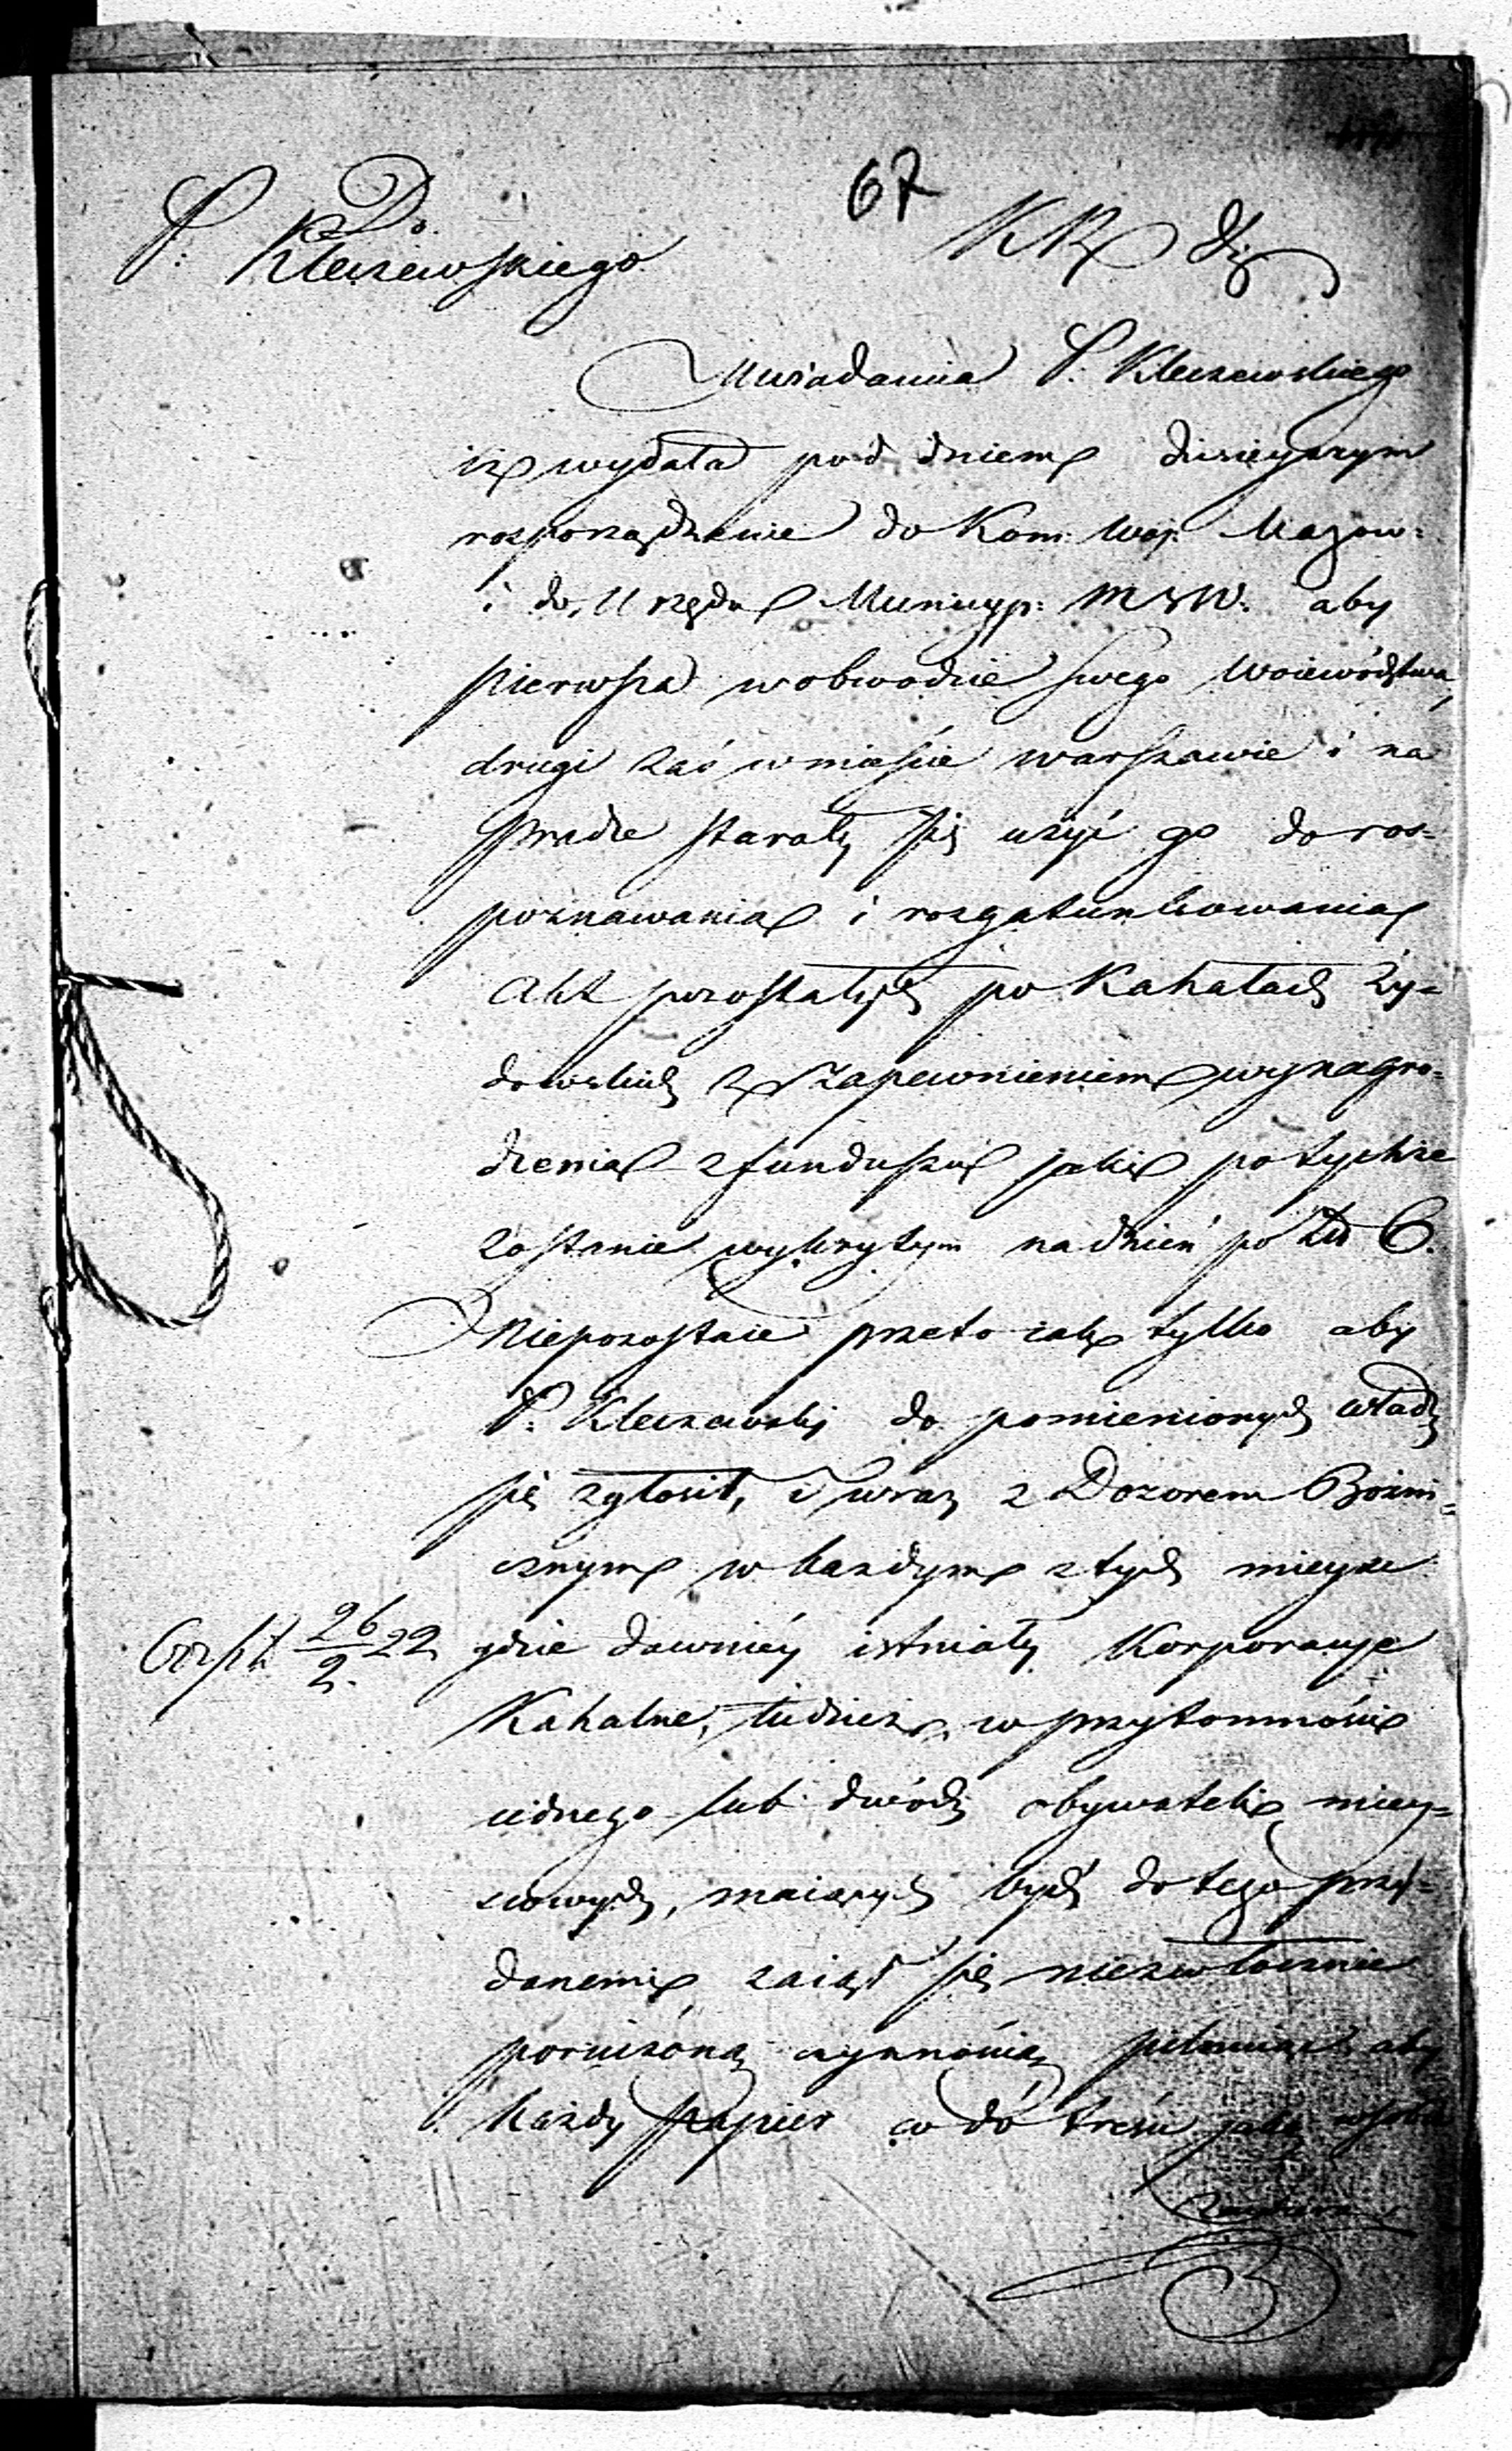 67
Do
P: Kleczewskiego
KR
Uwiadamia P: Kleczewskiego
iż wydała pod dniem dzisieyszym
rozporządzenie do Kom: Woj: Mazow:
i do Urzędu Municyp: M S W. aby
pierwsza w obwodzie swego Woiewództwa,
drugi zaś w mieście Warszawie i na
Pradze starały się użyć go do ros=
poznawania i rozgatunkowania
Akt pozostałych po Kahałach Ży=
dowskich z zapewnieniem wynagro=
dzenia z funduszu jaki po tychże
zostanie wykrytym na dzień po Zł 6.
Niepozostaie przeto iak tylko aby
P. Kleczewski do pomienionych władz
się zgłosił, i wraz z Dozorem Bożni=
cznym w każdym z tych mieysc
gdzie dawniéy istniały Korporacye
Kahalne, tudzież w przytomności
iednego lub dwóch obywateli miey=
scowych, maiących bydź do tego przy=
danemi zaiął się niezwłocznie
poruczoną czynnością pilnuiąc aby
każdy papier co do treści jaką w sobie
zawiera
26/2 22